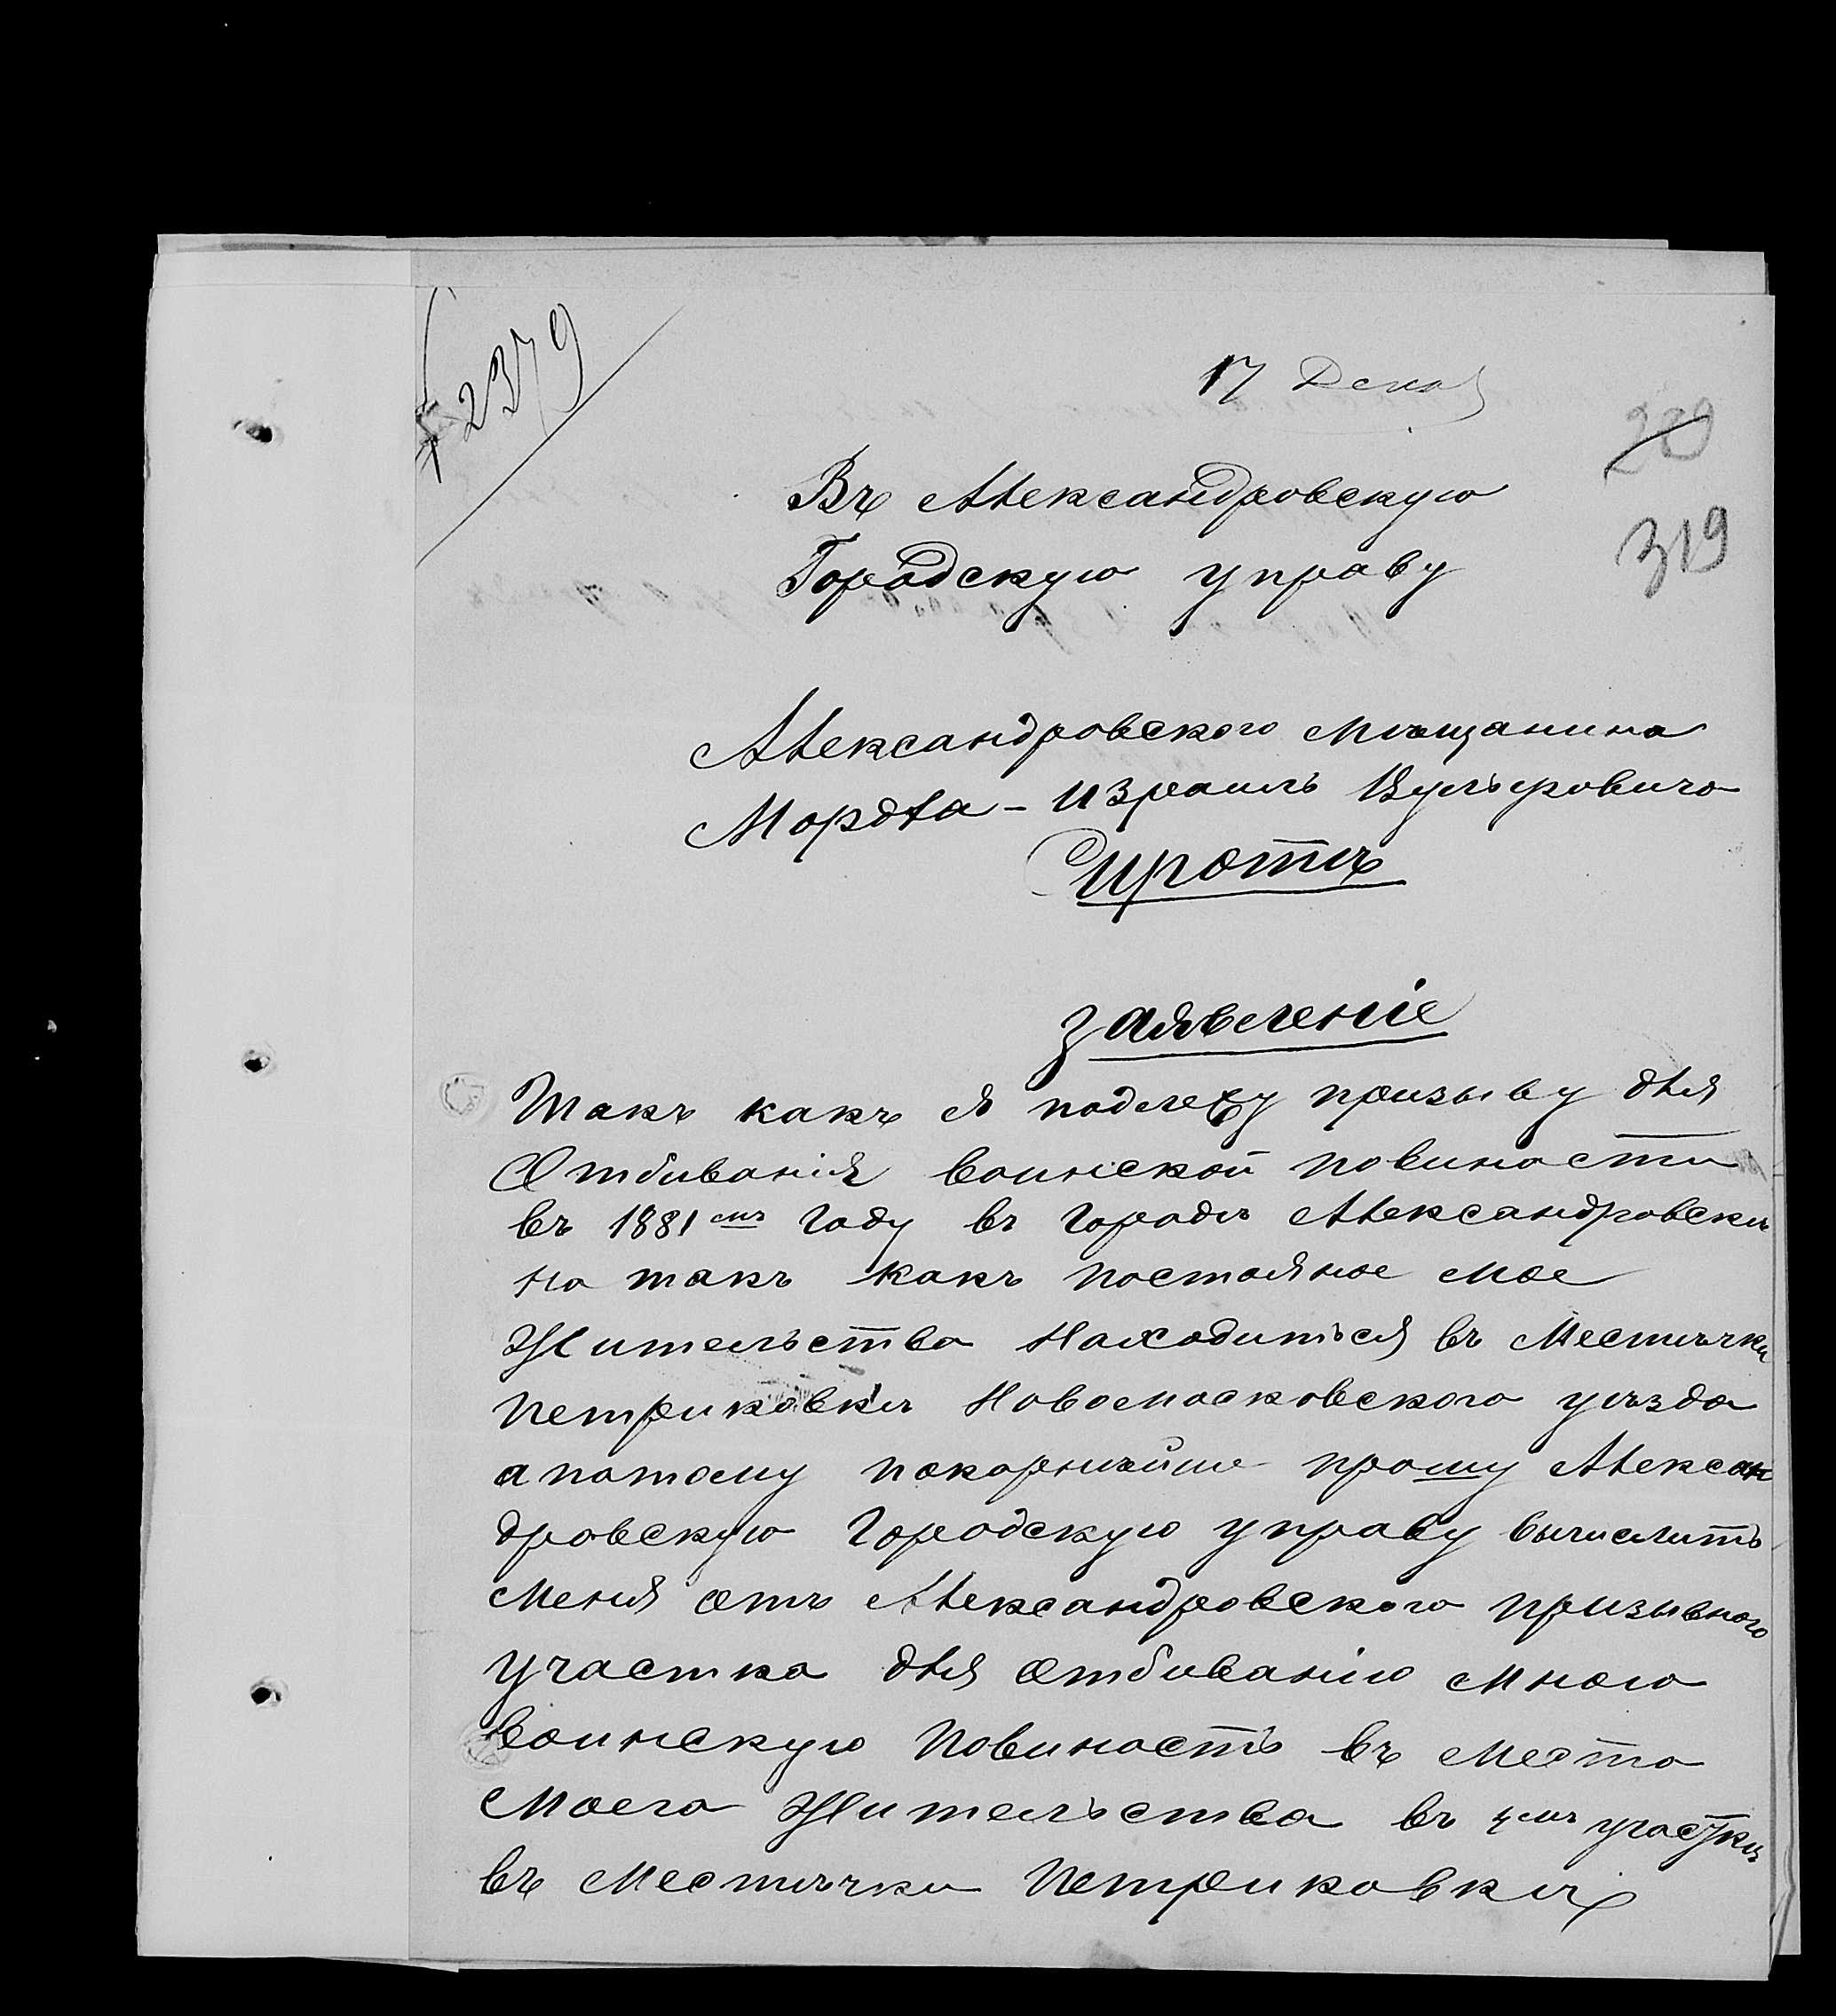 2379
17 Декаб
229
319
Въ Александровскую
Городскую управу
Александровского мѣщанина
Мордха-Израиль Вульфовича
Сиротъ
заявленіе
Такъ какъ я подлежу призыву для
Отбиванія воинской повиности
въ 1881мъ году въ городѣ Александровскѣ
но такъ какъ постояное мое
Жительства находиться въ Местѣчки
Петриковкѣ Новомосковского уѣзда
а потому покорнѣйше прошу Алексан
дровскую Городскую управу вычислить
меня отъ Александровского призывного
участка для отбиванію мною
воинскую повиность въ место
моего Жительства въ 4мъ участкѣ
въ местѣчки Петриковкѣ